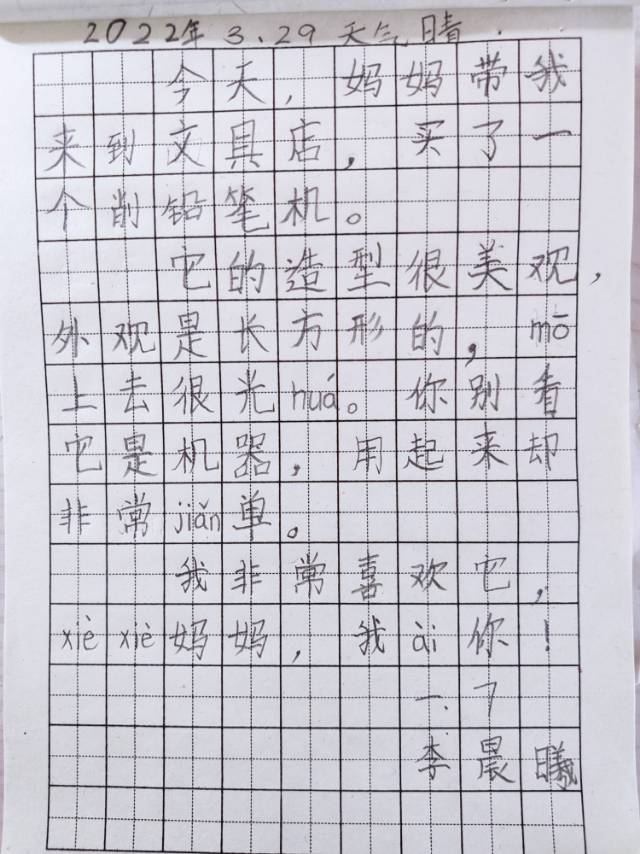 2022年 3.29 天气晴.
今天,妈妈带我
来到文具店,买了一
个削铅笔机。
它的造型很美观,
外观是长方形的,mō
上去很光huá。你别看
它是机器,用起来却
非常jiǎn单。
我非常喜欢它,
xiè xiè妈妈,我ài你!
一.7
李晨曦